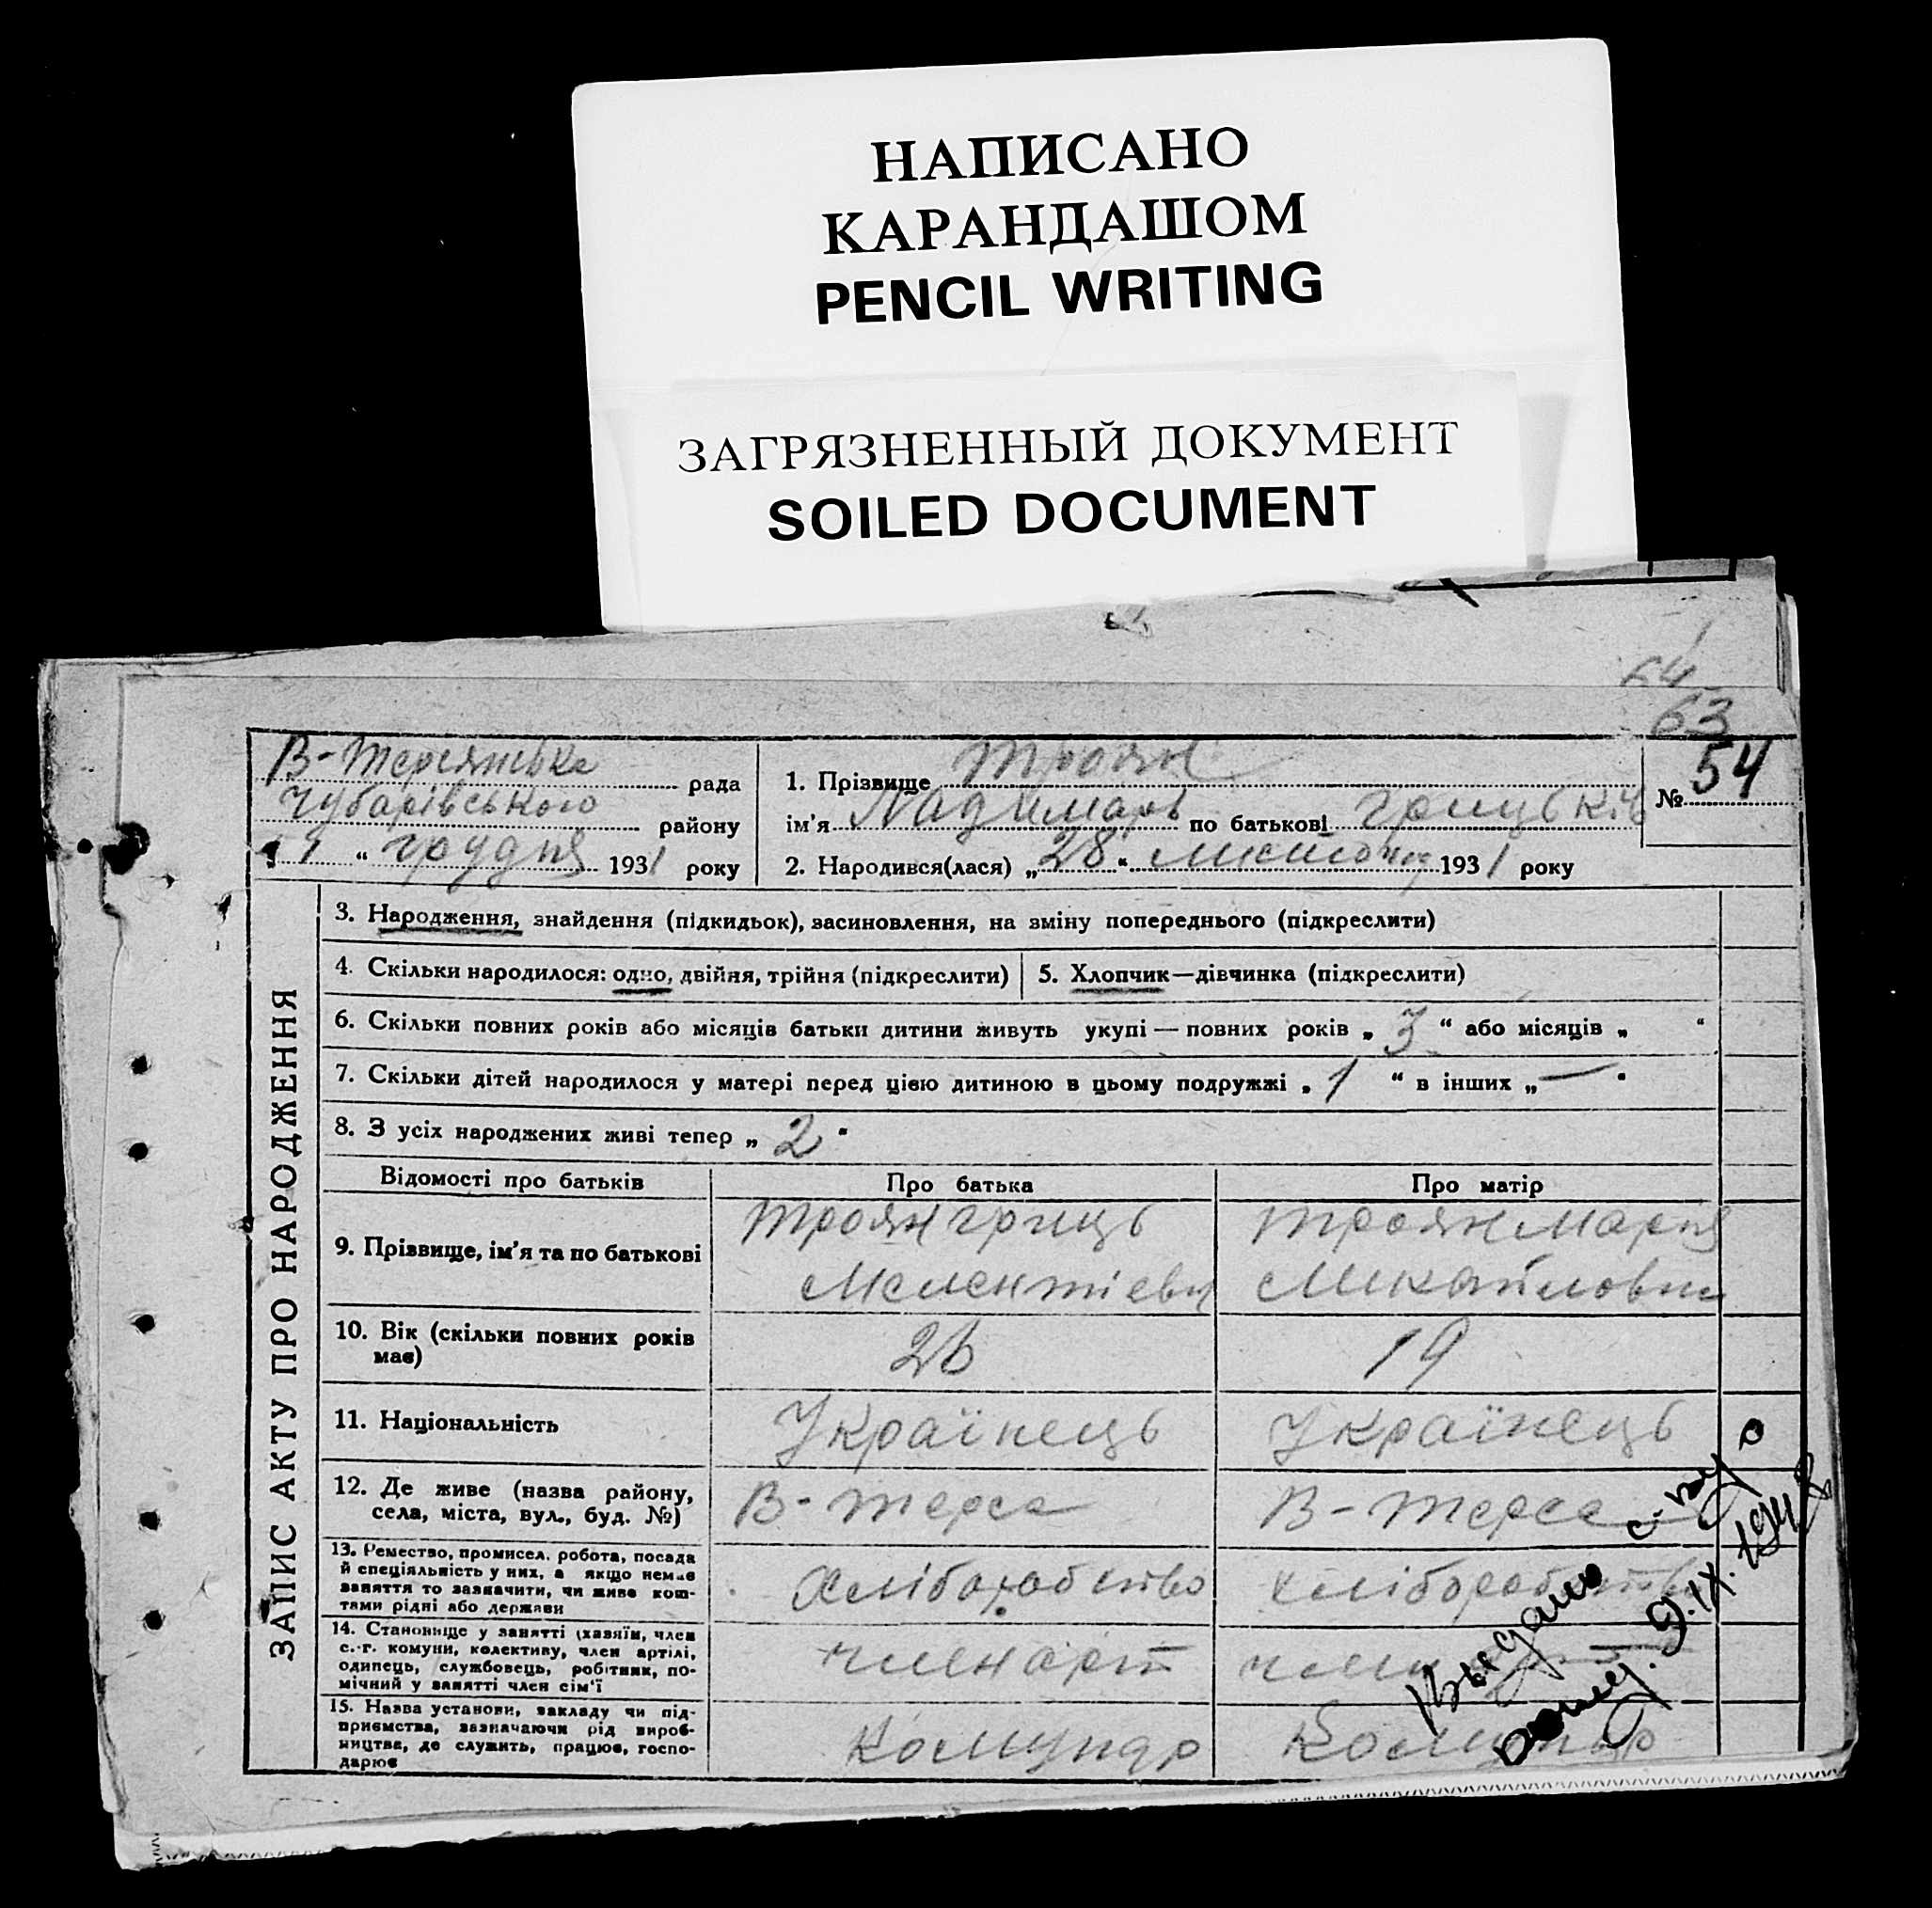 НАПИСАНО
КАРАНДАШОМ
PENCIL WRITING
ЗАГРЯЗНЕННЫЙ ДОКУМЕНТ
SOILED DOCUMENT
64
63
В-Терсянська рада
Чубарівського району
“ грудня 1931 року
1. Прізвище Троян
ім’я по батькові Грицьків
2. Народився(лася) „28“ 1931 року
№ 54
ЗАПИС АКТУ ПРО НАРОДЖЕННЯ
3. Народження, знайдення (підкидьок), засиновлення, на зміну попереднього (підкреслити)
4. Скільки народилося: одно, двійня, трійня (підкреслити)
5. Хлопчик—дівчинка (підкреслити)
6. Скільки повних років або місяців батьки дитини живуть укупі — повних років „ 3 “ або місяців „ “
7. Скільки дітей народилося у матері перед цією дитиною в цьому подружжі „ 1 “ в інших „ — “
8. З усіх народжених живі тепер „ 2 “
Відомості про батьків Про батька Про матір
9. Прізвище, ім’я та по батькові
Троян Гриць
Мелентієвич
Троян Марія
Михайловна
10. Вік (скільки повних років
має)
26
19
11. Національність
Українець
Українець
12. Де живе (назва району,
села, міста, вул., буд. №)
В-Терса
В-Терса
13. Ремество, промисел, робота, посада
й спеціяльність у них, а якщо немає
заняття то зазначити, чи живе кош-
тами рідні або держави
Хліборобство
хліборобство
14. Становище у занятті (хазяїн, член
с.-г. комуни, колективу, член артілі,
одинець, службовець, робітник, по-
мічний у занятті член сім’ї
член арт
член
15. Назва установи, закладу чи під-
приємства, зазначаючи рід вироб-
ництва, де служить, працює, госпо-
дарює
Комунар
Комунар
Выдано с-ву о
рожд. 9.IX.1948